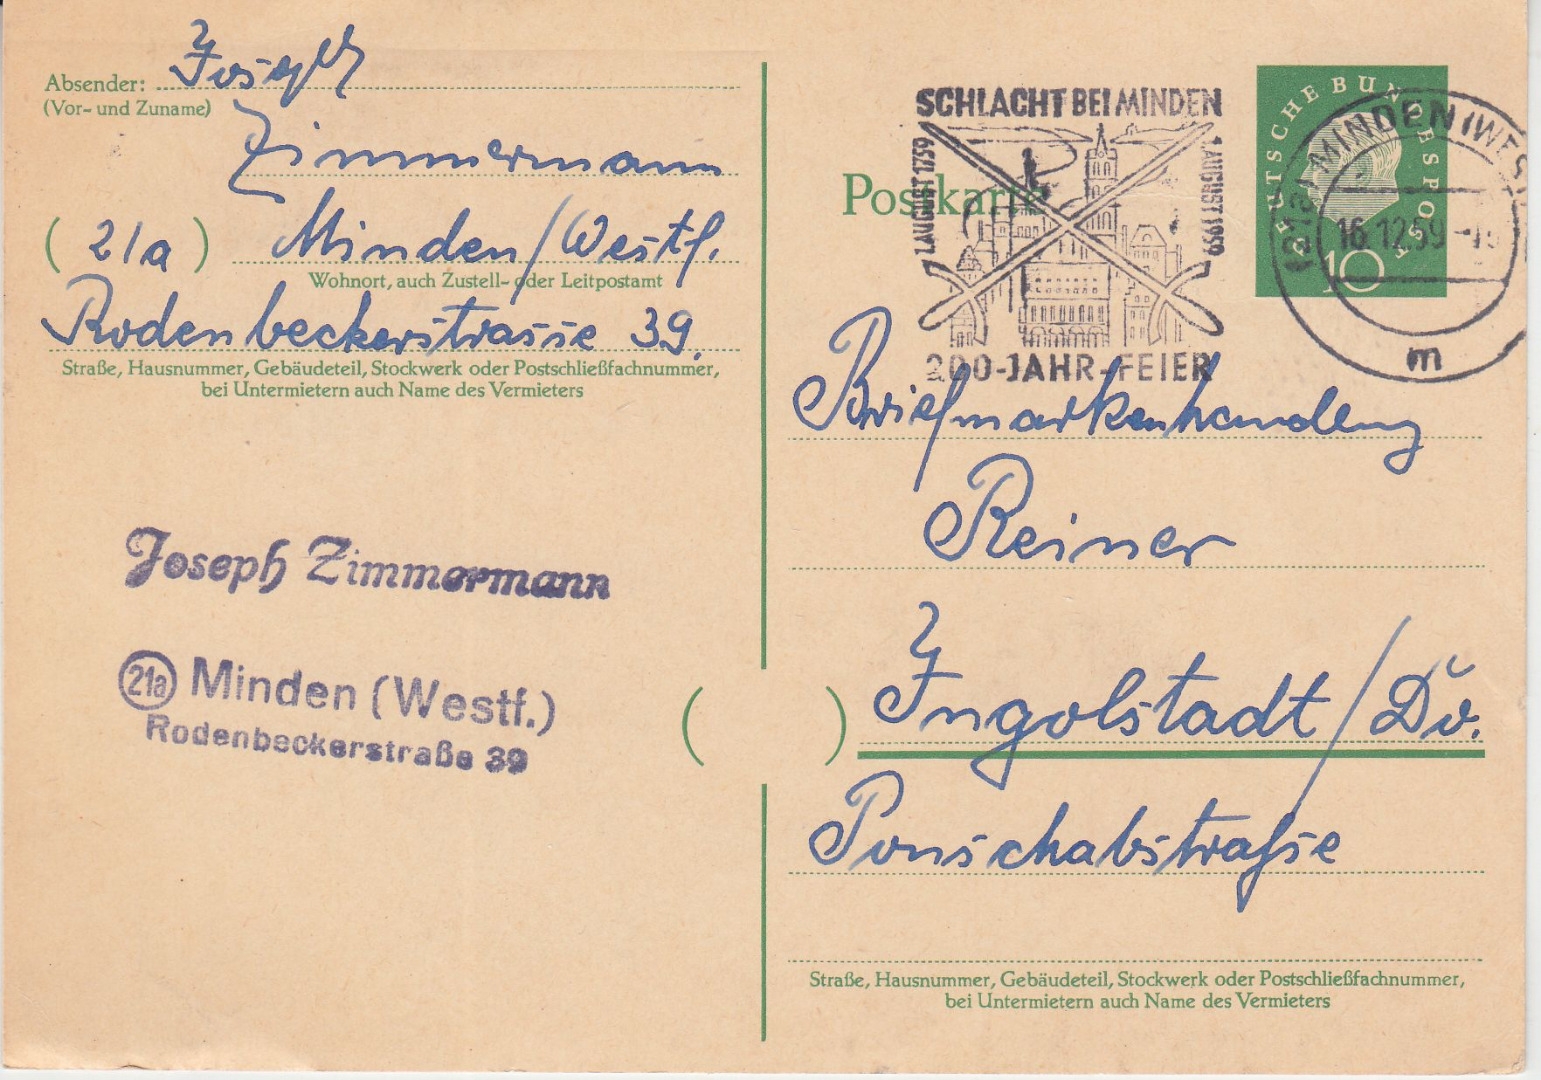 Absender: Joseph
(Vor- und Zuname)
Zimmermann
(21a) Minden/Westf.
Wohnort, auch Zustell- oder Leitpostamt
Rodenbeckerstrasse 39.
Straße, Hausnummer, Gebäudeteil, Stockwerk oder Postschließfachnummer,
bei Untermietern auch Name des Vermieters
Joseph Zimmermann
21a Minden (Westf.)
Rodenbeckerstraße 39
SCHLACHT BEI MINDEN
1. AUGUST 1759
1. AUGUST 1959
200-JAHR-FEIER
Postkarte
DEUTSCHE BUNDESPOST
10
(21a) MINDEN (WESTF
16.12.59
m
Briefmarkenhandlung
Reiner
Ingolstadt/Do.
Straße, Hausnummer, Gebäudeteil, Stockwerk oder Postschließfachnummer,
bei Untermietern auch Name des Vermieters